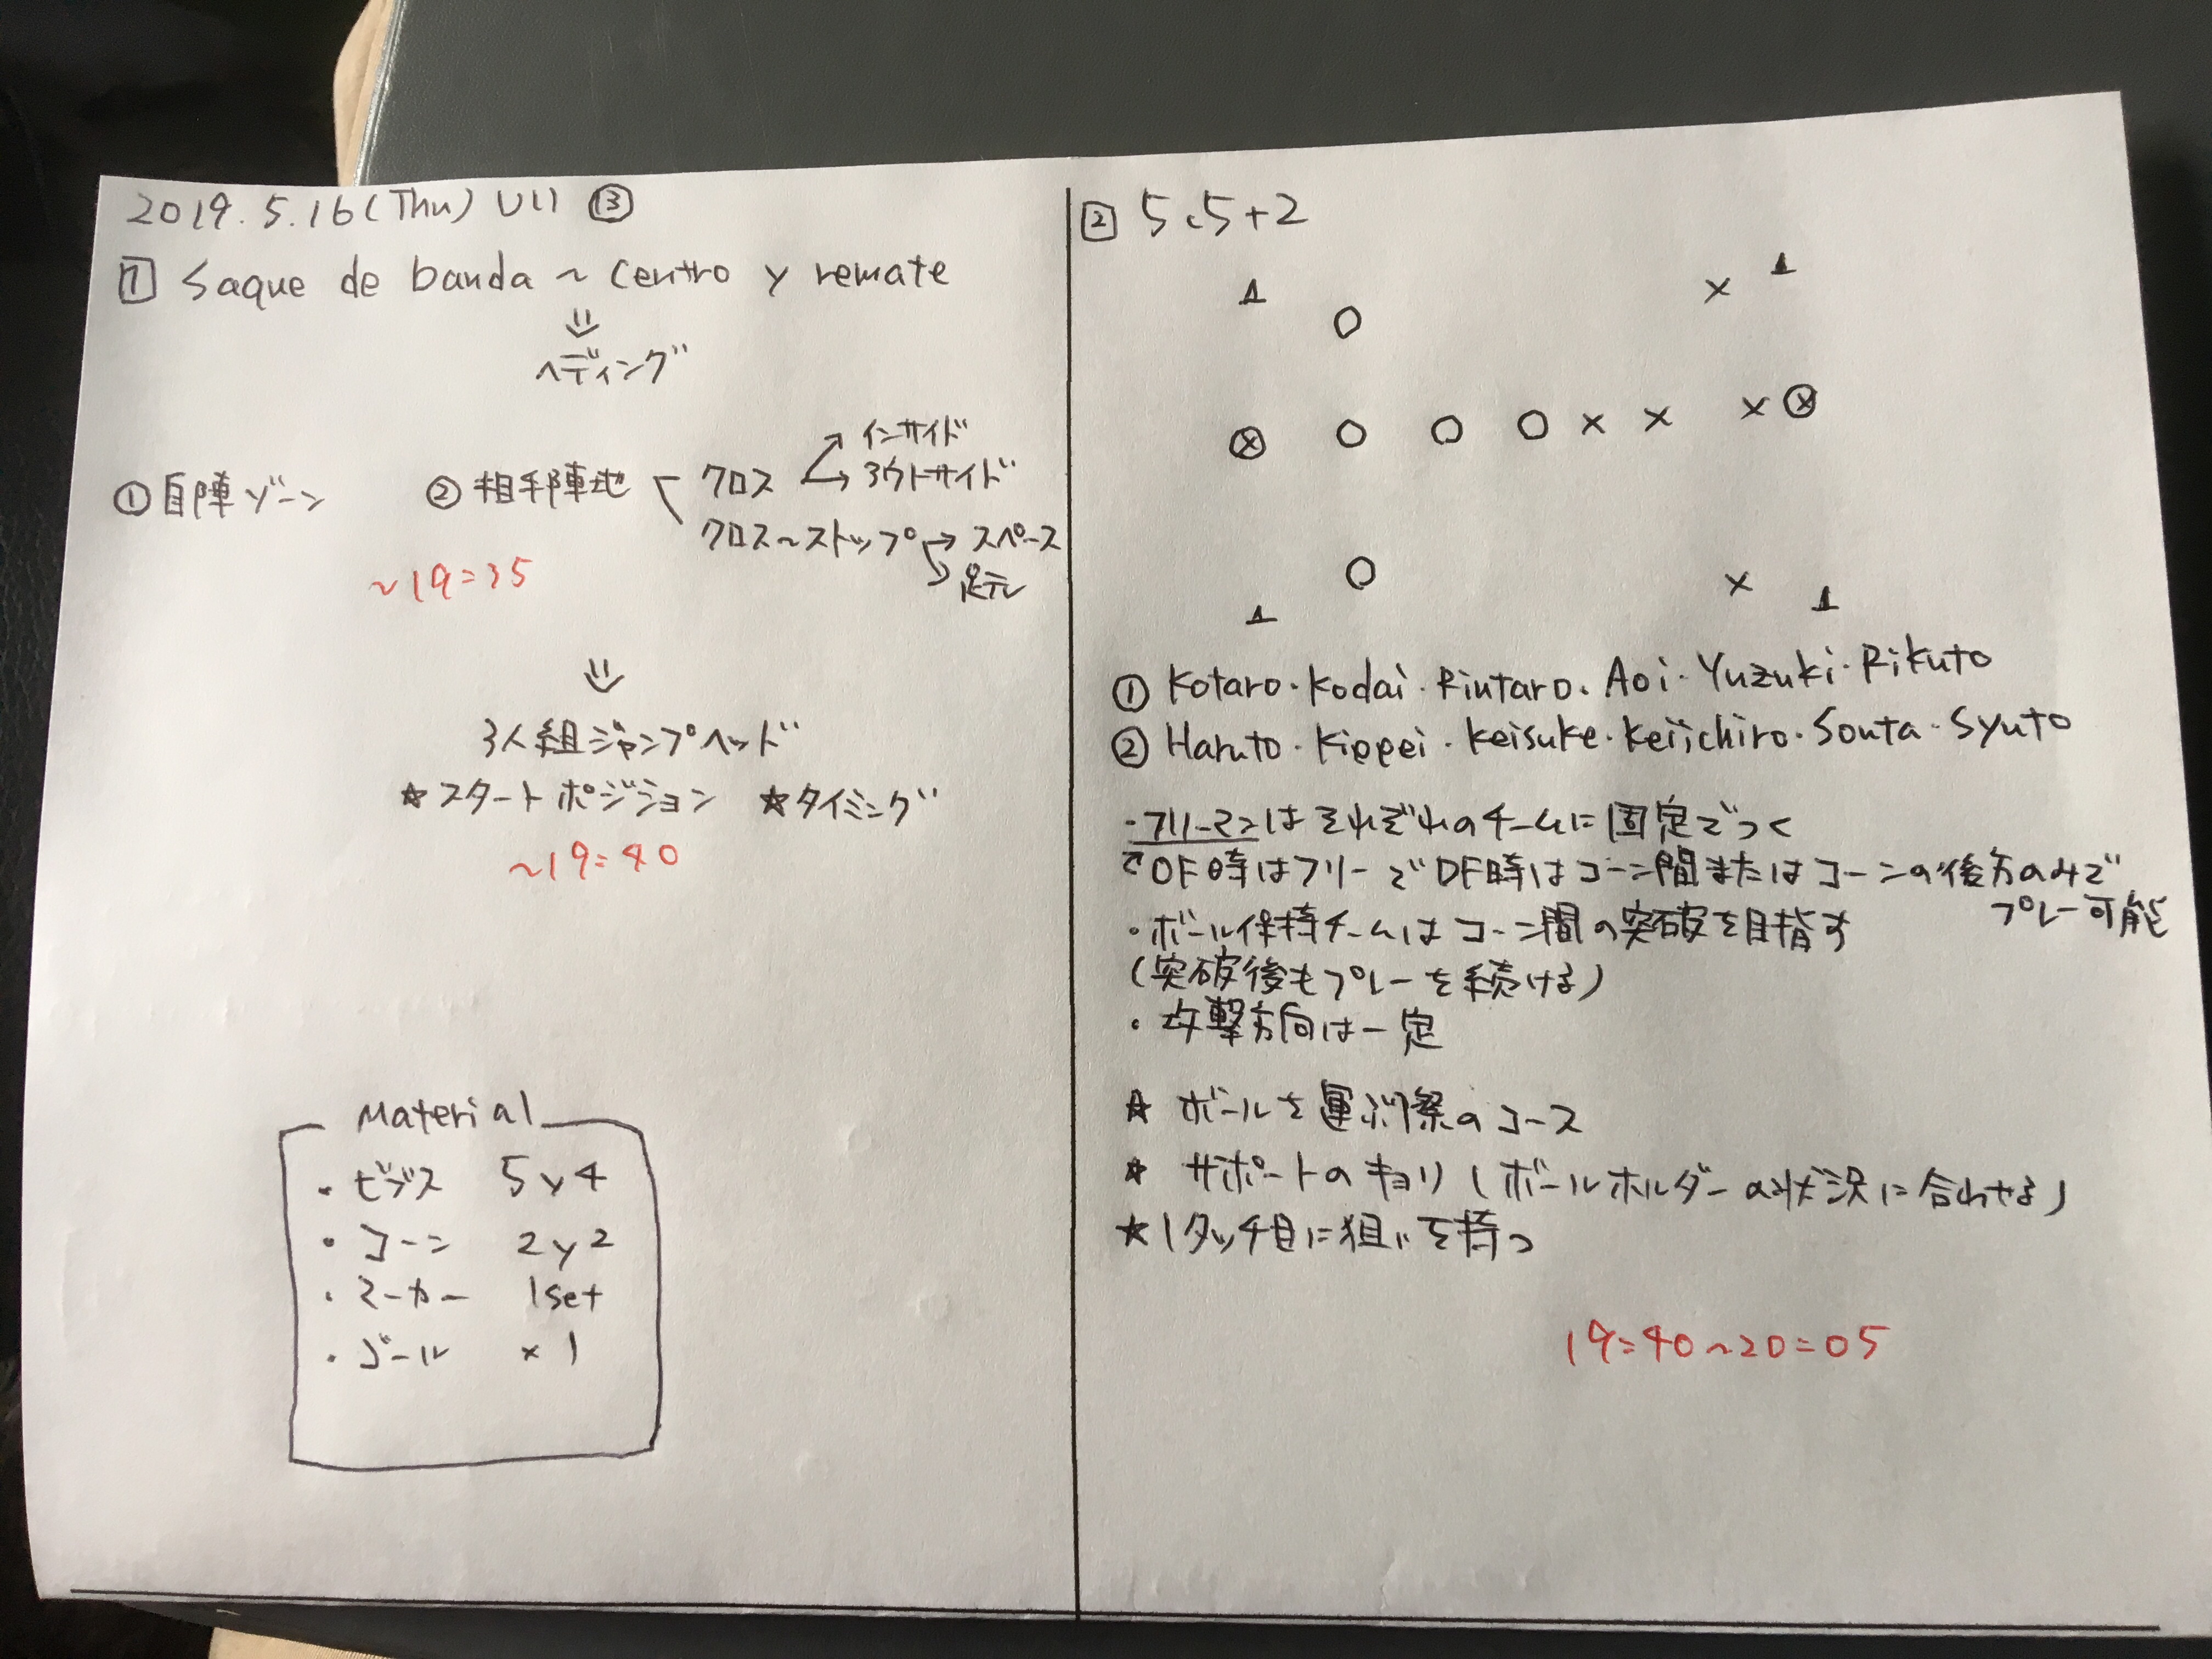 2019.5.16(Thu) U11 ③
1 Saque de banda ~ centro y remate
⇓
ヘディング
①自陣ゾーン ②相手陣地 クロス → インサイド
→ アウトサイド
クロス～ストップ → スペース
→ 足元
~19:35
⇓
3人組ジャンプヘッド
☆スタートポジション ☆タイミング
~19:40
Material
・ビブス 5y4
・コーン 2y2
・マーカー 1set
・ゴール ×1
2 5、5+2
① Kotaro・Kodai・Rintaro・Aoi・Yuzuki・Rikuto
② Haruto・Kippei・Keisuke・Keiichiro・Souta・Syuto
・フリーマンはそれぞれのチームに固定でつく
OF時はフリーでDF時はコーン間またはコーンの後方のみで
プレー可能
・ボール保持チームはコーン間の突破を目指す
(突破後もプレーを続ける)
・攻撃方向は一定
☆ ボールを運ぶ際のコース
☆ サポートのキョリ(ボールホルダーの状況に合わせる)
☆1タッチ目に狙いを持つ
19:40~20:05